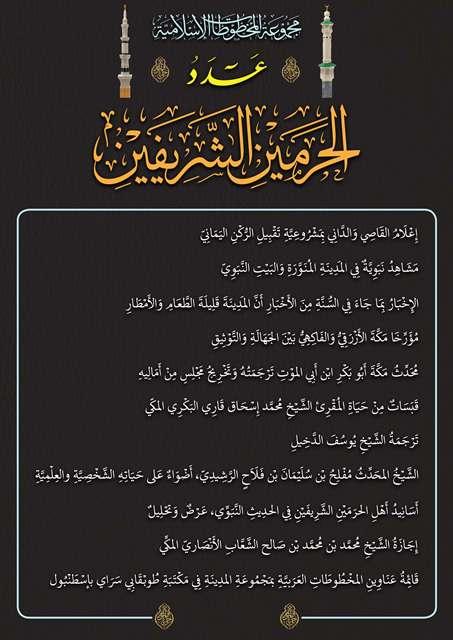 مجموعة المخطوطات الإسلامية
عَدَدُ
الحَرَمَيْنِ الشَّرِيفَيْنِ
إِعْلَامُ القَاصِي وَالدَّانِي بِمَشْرُوعِيَّةِ تَقْبِيلِ الرُّكْنِ اليَمَانِيّ
مَشَاهِدُ نَبَوِيَّةٌ فِي المَدِينَةِ المُنَوَّرَةِ وَالبَيْتِ النَّبَوِيّ
الإِخْبَارُ بِمَا جَاءَ فِي السُّنَّةِ مِنَ الأَخْبَارِ أَنَّ المَدِينَةَ قَلِيلَةُ الطَّعَامِ وَالأَمْطَارِ
مُؤَرِّخَا مَكَّةَ الأَزْرَقِيُّ وَالفَاكِهِيُّ بَيْنَ الجَهَالَةِ وَالتَّوْثِيقِ
مُحَدِّثُ مَكَّةَ أَبُو بَكْرِ ابْنِ أَبِي المَوْتِ تَرْجَمَتُهُ وَتَخْرِيجُ مَجْلِسٍ مِنْ أَمَالِيهِ
قَبَسَاتٌ مِنْ حَيَاةِ المُقْرِئِ الشَّيْخِ مُحَمَّد إِسْحَاق قَارِي البَكْرِي المَكِّي
تَرْجَمَةُ الشَّيْخِ يُوسُفَ الدَّخِيلِ
الشَّيْخُ المُحَدِّثُ مُفْلِحُ بْن سُلَيْمَانَ بْن فَلَاحٍ الرَّشِيدِيّ، أَضْوَاءٌ عَلَى حَيَاتِهِ الشَّخْصِيَّةِ وَالعِلْمِيَّةِ
أَسَانِيدُ أَهْلِ الحَرَمَيْنِ الشَّرِيفَيْنِ فِي الحَدِيثِ النَّبَوِّي، عَرْضٌ وَتَحْلِيلٌ
إِجَازَةُ الشَّيْخِ مُحَمَّد بْن مُحَمَّد بْن صَالح الشَّعَّاب الأَنْصَارِيّ المَكِّي
قَائِمَةُ عَنَاوِينِ المَخْطُوطَاتِ العَرَبِيَّةِ بِمَجْمُوعَةِ المَدِينَةِ فِي مَكْتَبَةِ طُوبْقَابِي سَرَاي بإِسْطَنْبُول